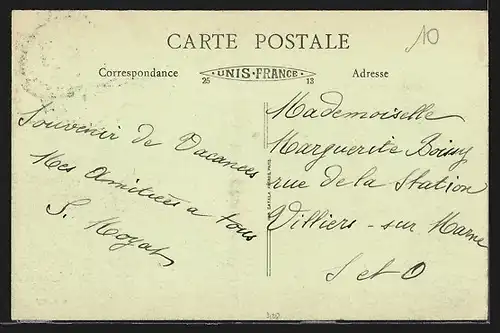 CARTE POSTALE
10
Correspondance
UNIS-FRANCE
25 13
Adresse
Souvenir de Vacances
Mes Amitiées a tous
S.
Mademoiselle
Marguerite
rue de la Station
Villiers - sur Marne
S et O